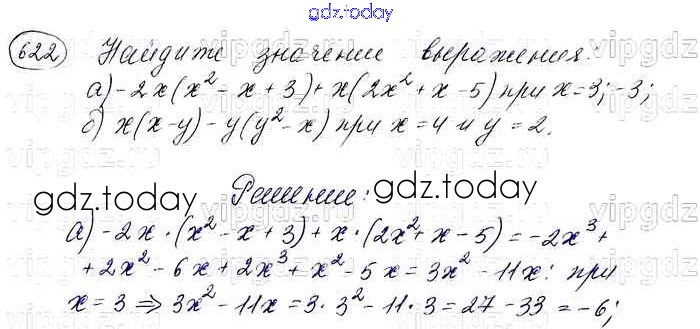 gdz.today
622 Найдите значение выражения:
а) -2x(x² - x + 3) + x(2x² + x - 5) при x = 3; -3;
б) x(x-y) - y(y² - x) при x = 4 и y = 2.
gdz.today Решение: gdz.today
а) -2x · (x² - x + 3) + x · (2x² + x - 5) = -2x³ +
+ 2x² - 6x + 2x³ + x² - 5x = 3x² - 11x: при
x = 3 ⇒ 3x² - 11x = 3 · 3² - 11 · 3 = 27 - 33 = -6;